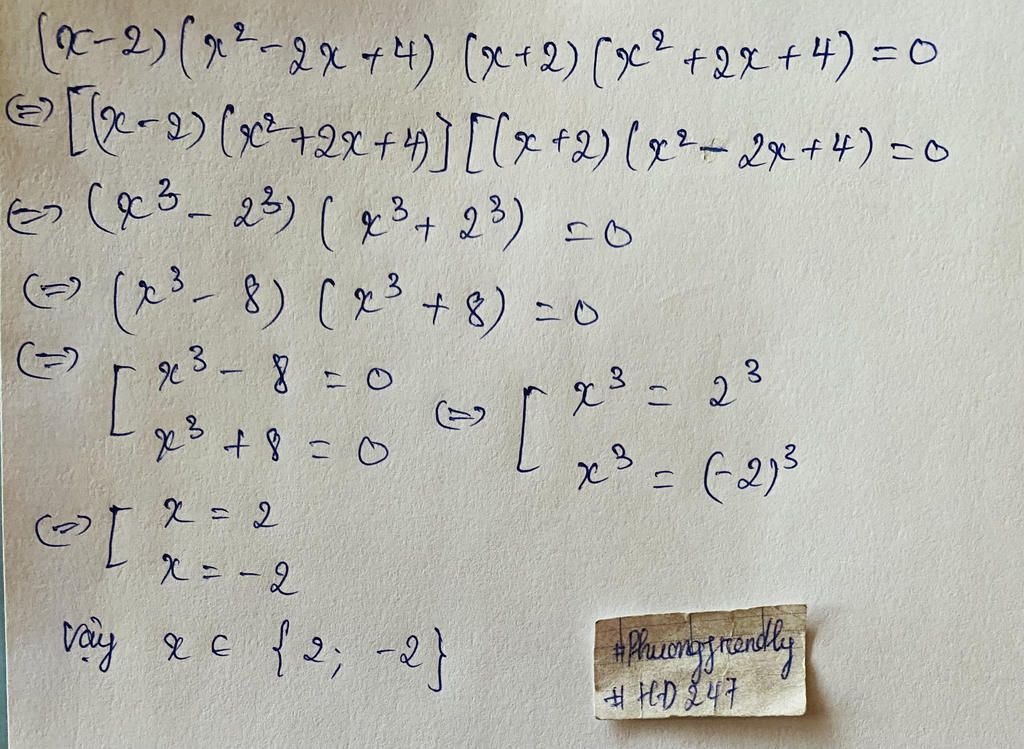 (x-2)(x²-2x+4)(x+2)(x²+2x+4)=0
(=) [(x-2)(x²+2x+4)][(x+2)(x²-2x+4)=0
(=) (x³-2³)(x³+2³) =0
(=) (x³-8)(x³+8)=0
(=) [ x³-8=0 (=) [ x³=2³
x³+8=0 x³=(-2)³
(=) [ x=2
x=-2
Vậy x ∈ {2; -2}
#Phuongfriendly
#HD247